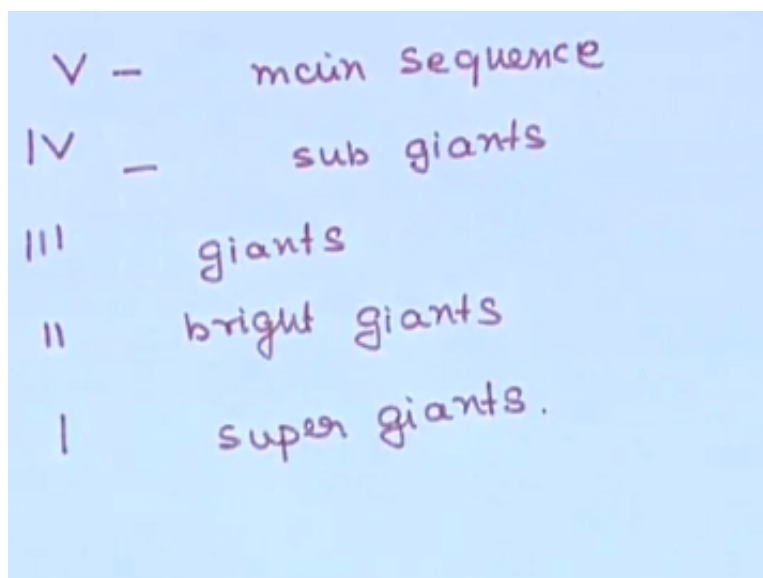 V - main sequence
IV - sub giants
III giants
II bright giants
I super giants.